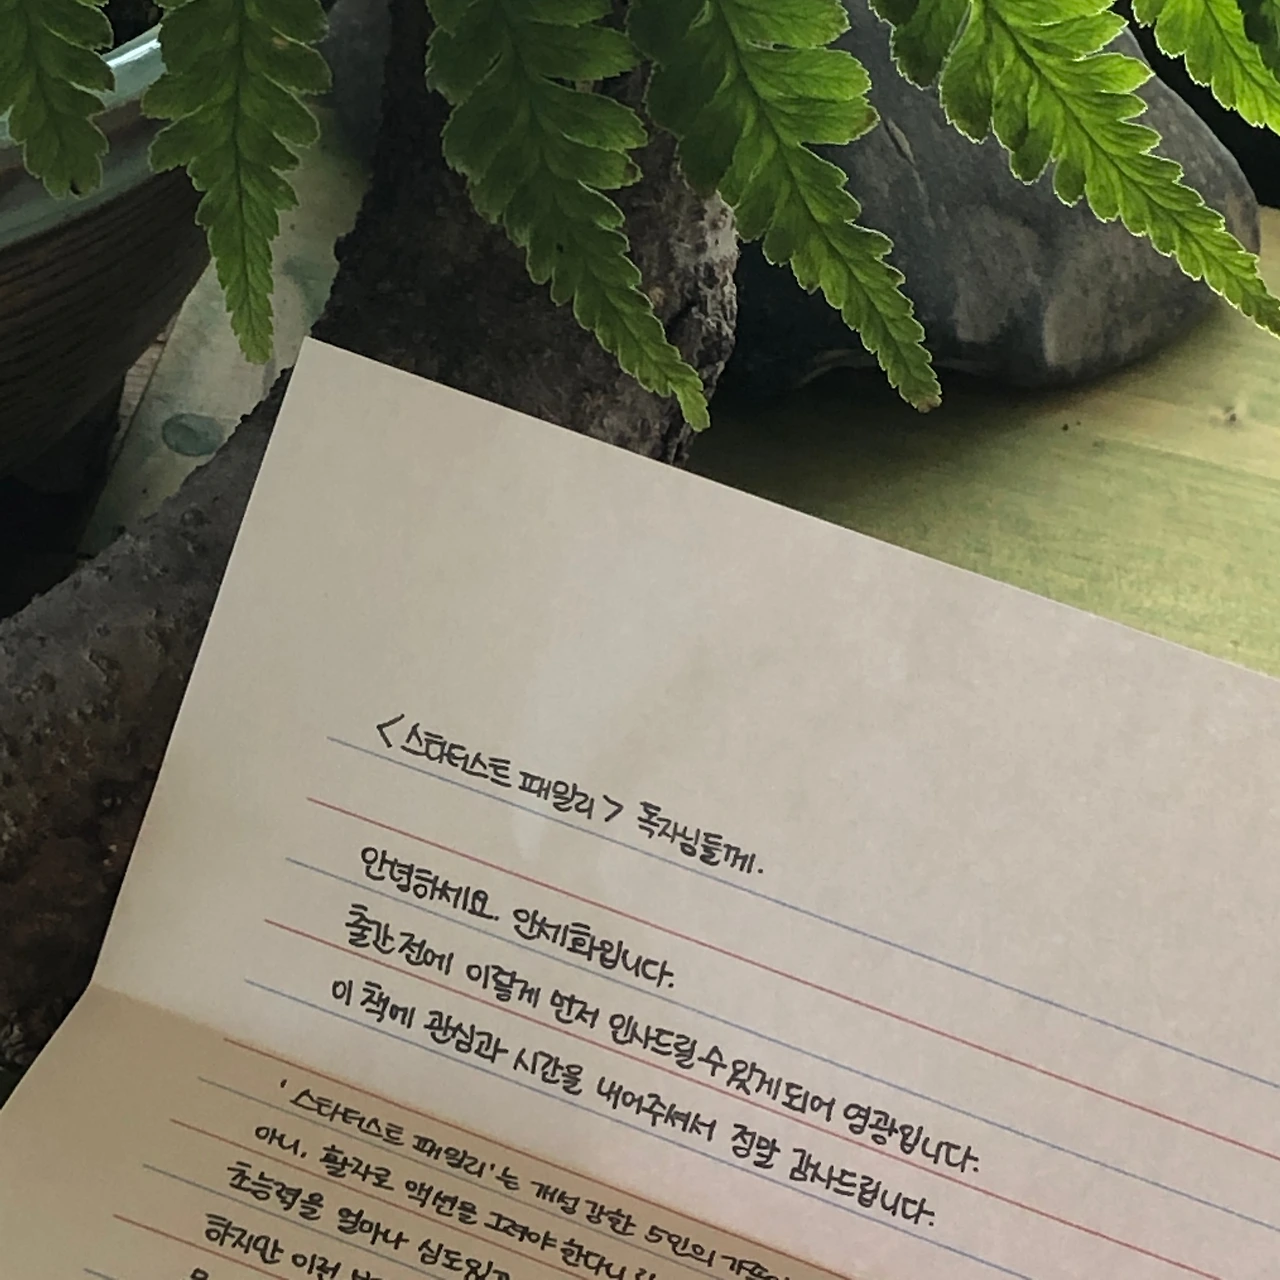 <스타터스트 패밀리> 독자님들께.
안녕하세요. 안세화입니다.
출간 전에 이렇게 먼저 인사드릴 수 있게 되어 영광입니다.
이 책에 관심과 시간을 내어주셔서 정말 감사드립니다.
'스타터스트 패밀리'는 개성 강한 5인의
아니, 활자로 액션을 그려야 한다니
초능력을 얼마나 심도있게
하지만 이런